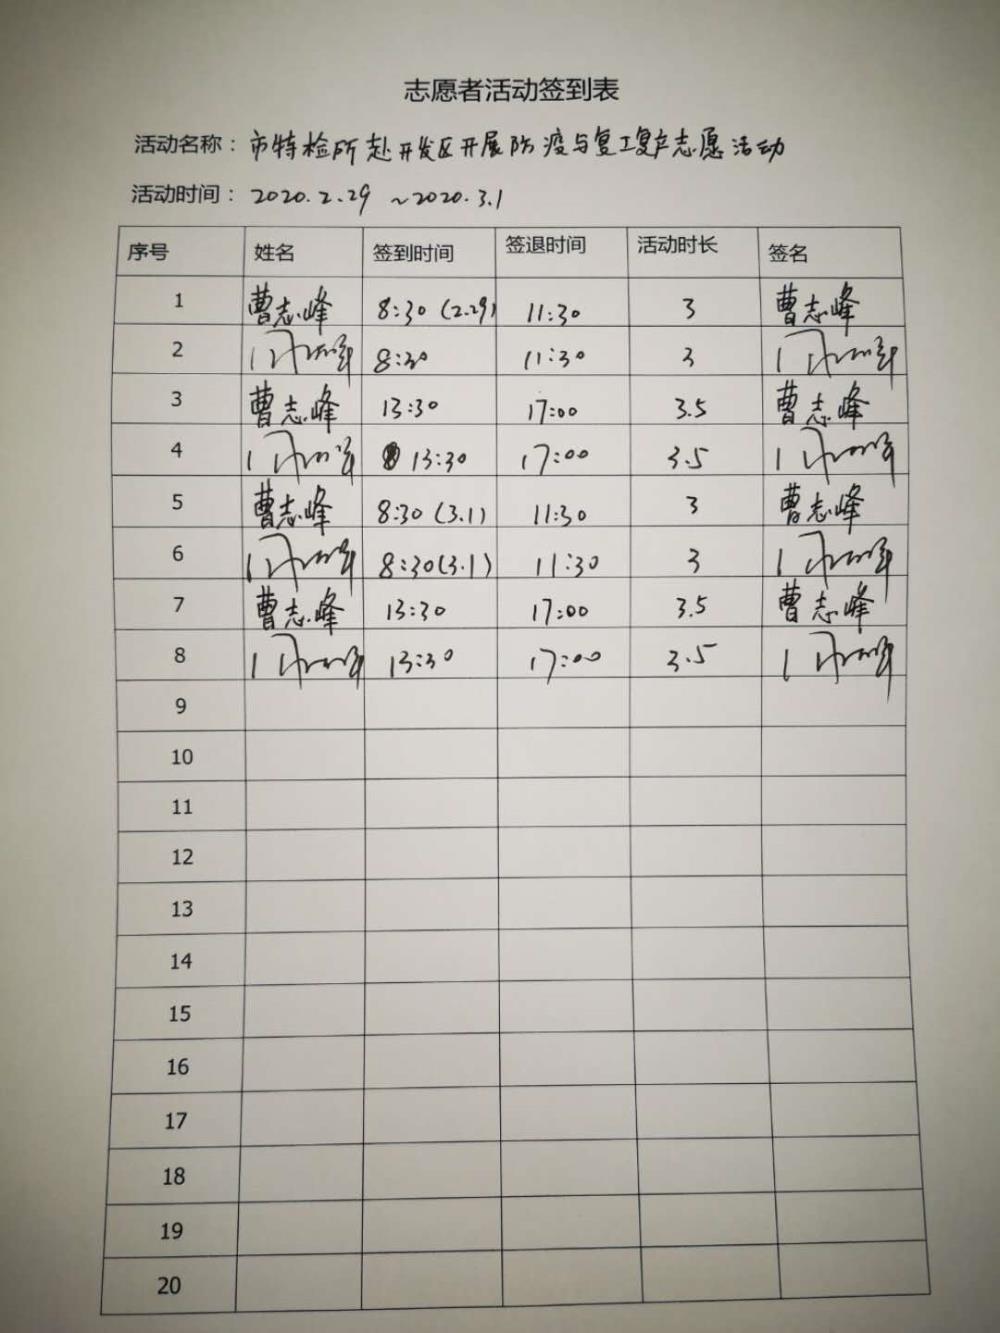 志愿者活动签到表
活动名称：市特检所赴开发区开展防疫与复工复产志愿活动
活动时间：2020.2.29 ~2020.3.1
序号 姓名 签到时间 签退时间 活动时长 签名
1 曹志峰 8:30 (2.29) 11:30 3 曹志峰
2 8:30 11:30 3
3 曹志峰 13:30 17:00 3.5 曹志峰
4 13:30 17:00 3.5
5 曹志峰 8:30 (3.1) 11:30 3 曹志峰
6 8:30(3.1) 11:30 3
7 曹志峰 13:30 17:00 3.5 曹志峰
8 13:30 17:00 3.5
9
10
11
12
13
14
15
16
17
18
19
20